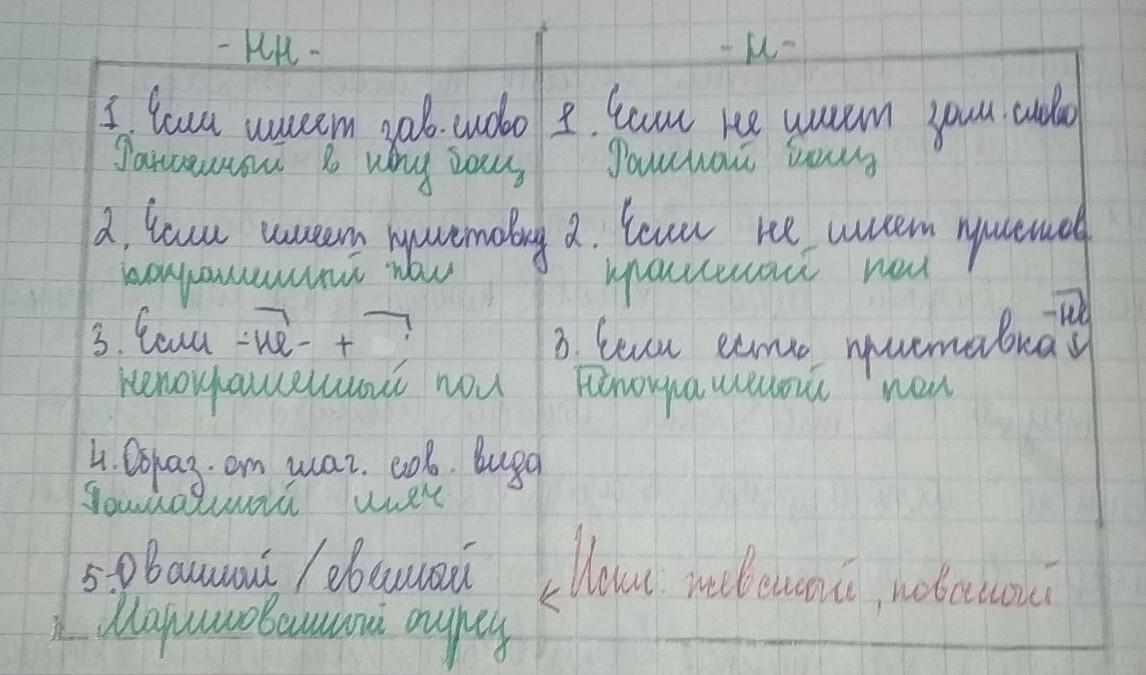 -НН-
1. Если имеет зав. слово
Раненный в ногу боец
2. Если имеет приставку
покрашенный пол
3. Если -не- +
непокрашенный пол
4. Образ. от глаг. сов. вида
мяч
5. Ованный / еванный
Маринованный огурец
-Н-
1. Если не имеет зави. слово
Раненый боец
2. Если не имеет пристав
крашеный пол
3. Если есть приставка -не
Непокрашеный пол
Искл: жеваный, кованый